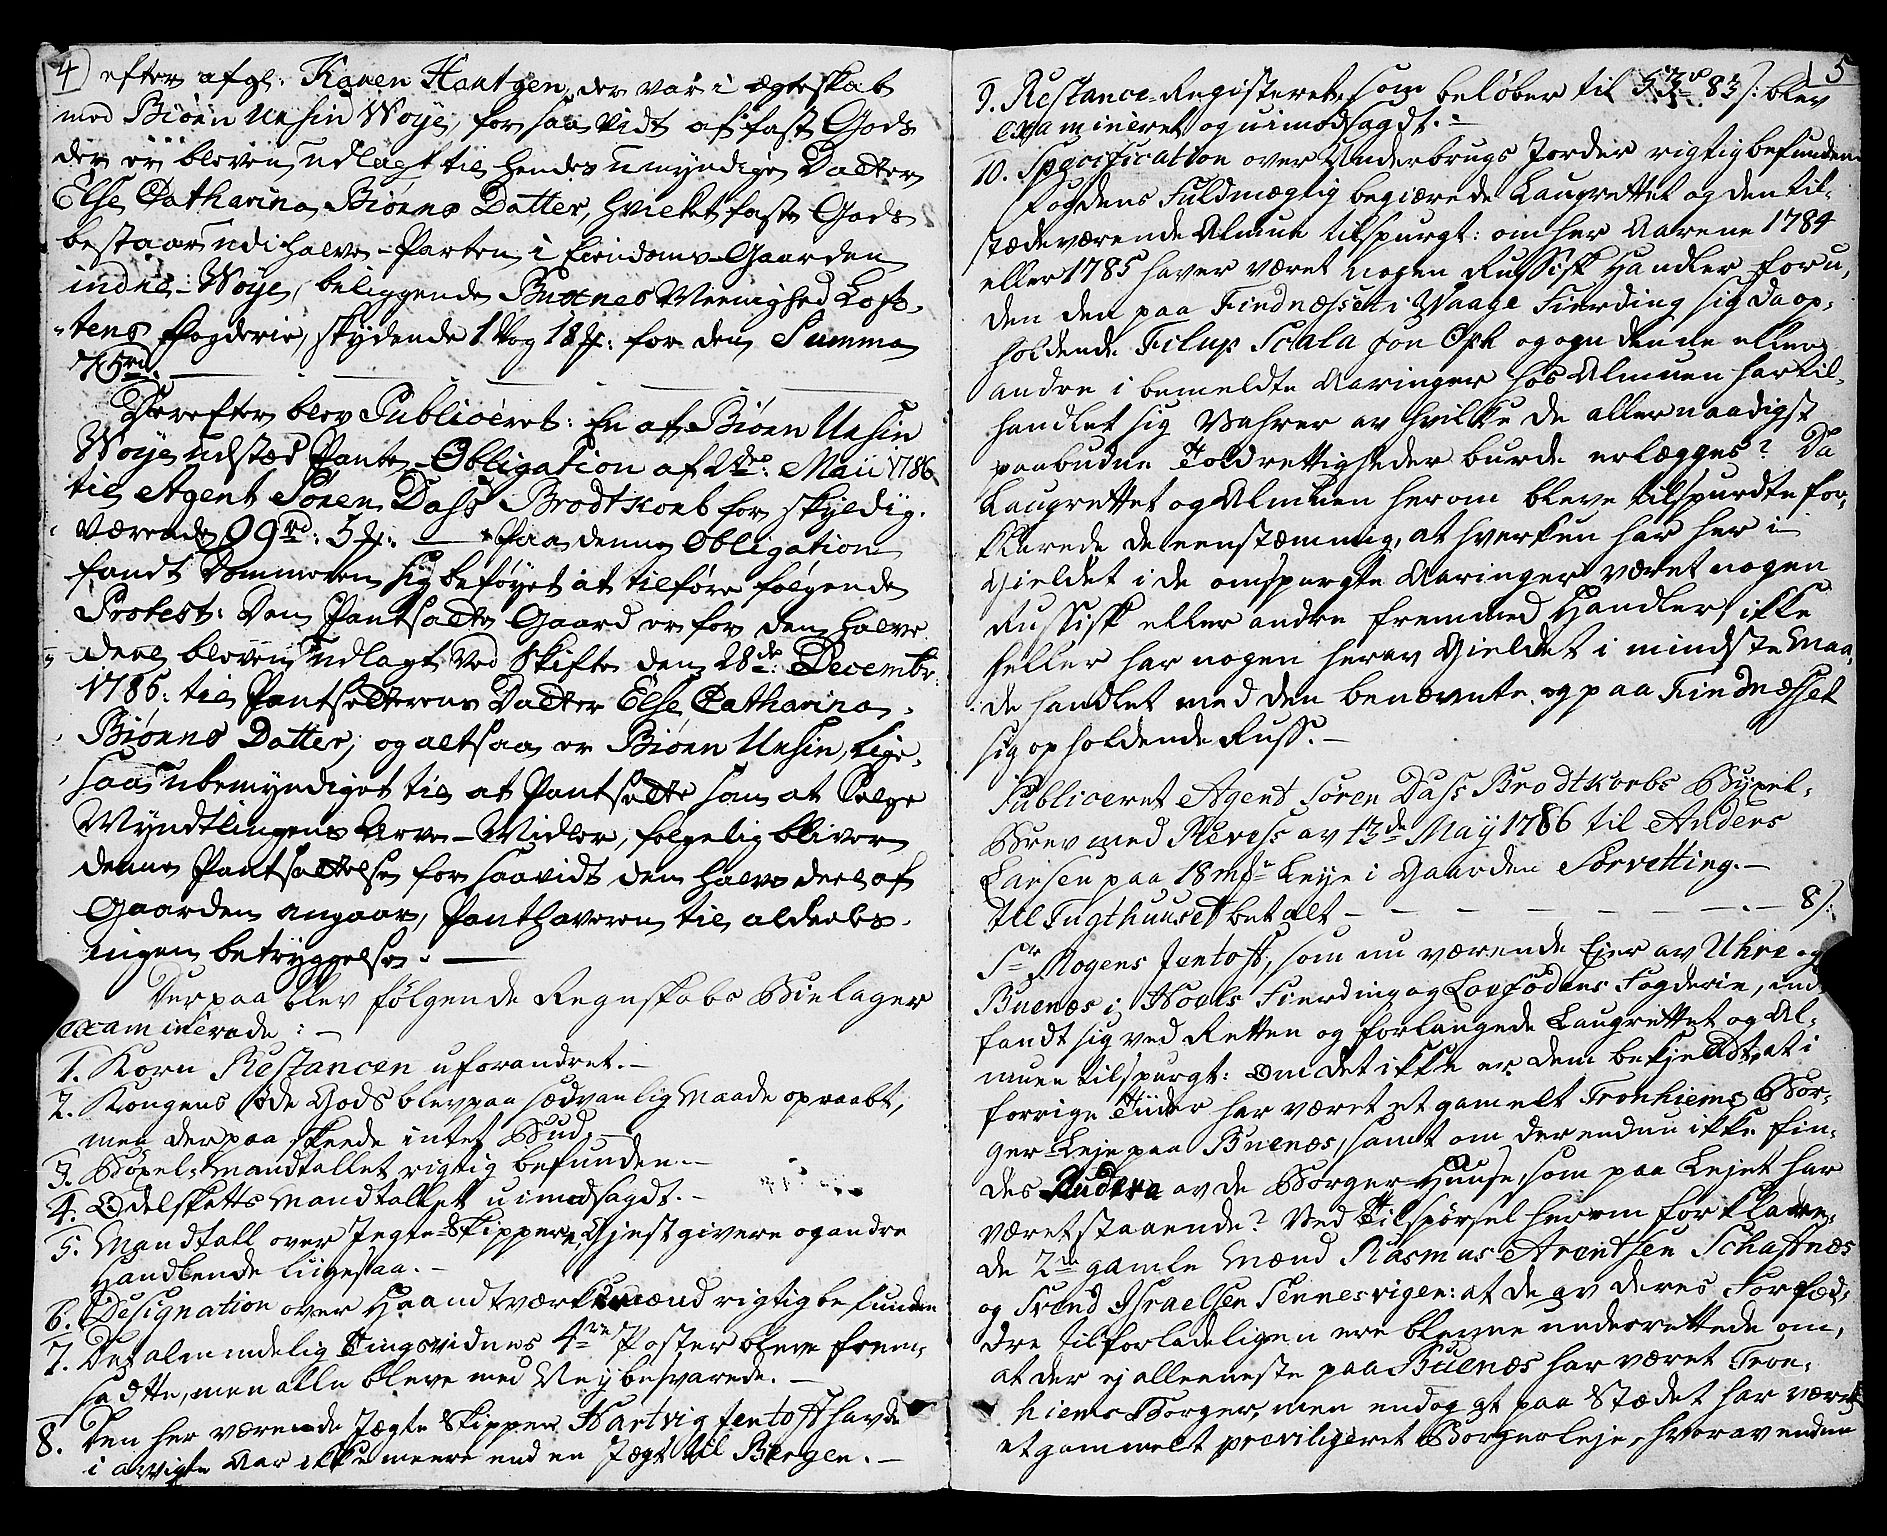 4) efter afg: Karen Hartgen, der var i ægteskab
med Biörn Ursin Woje, for saavidt af fast Gods
der er bleven udlagt til hendes umyndige Datter
Else Catharina Biörns Datter, hvilket faste Gods
bestaar udi halve-Parten i Eiendoms-Gaarden
indre-Woje, beliggende Buxnes Meenighed Lofo-
tens Fogderie, skyldende 1 Vog 18 : for den Summa
Derefter blev Publiceret: En af Biörn Ursin
Woje udstæd Pante-Obligation af 2de: Maii 1786
til Agent Sören Dass Brodtkorb for skyldig-
værende 99rd: 5 : — Paa denne Obligation
fandt Dommeren sig beföyet at tilföre fölgende
Protest: Den Pantsatte Gaard er for den halve
deel bleven udlagt ved Skifte den 28de: Decembr:
1785: til Pantsætterens Datter Else Catharina
Biörns Datter, og altsaa er Biörn Ursin lige-
saa ubemyndiget til at Pantsætte som at Selge
Myndtlingens Arve-Midler, fölgelig bliver
denne Pantsættelse for saavidt den halve deel af
Gaarden angaar, Panthaveren til aldeeles
ingen betryggelse. —
Derpaa blev fölgende Regnskabs Bielager
examinerede: —
1. Korn Restancen uforandret. —
2. Kongens öde Gods blev paa sædvanlig Maade opraabt,
men derpaa skeede intet Bud. —
3. Böxel-Mandtallet rigtig befunden. —
4. Odelskatts Mandtallet uimodsagt. —
5. Mandtall over Jegte-Skippere, Gjestgivere og andre
Handlende liigesaa. —
6. Designation over Haandtværksmænd rigtig befunden
7. Det almindelig Tingsvidnes 4re Poster bleve frem-
satte, men alle bleve med Ney besvarede. —
8. Den her værende Jægte Skipper Hartvig Jentoft havde
i avvigte Aar ikke meere end en Jægt til Bergen. —
5
9. Restance-Registeret, som belöber til 53rd 83 s: blev
examineret og uimodsagt. —
10. Specification over Underbrugs Jorder rigtig befunden
Fogdens Fuldmægtig begiærede Laugrettet og den til-
stædeværende Almue tilspurgt: om her Aarene 1784
eller 1785 haver været nogen Russisk Handler foru-
den den paa Findnæsset i Waage Fierding sig da op-
holdende Filup Scala og om denne eller
andre i bemeldte Aaringer hos Almuen har til-
handlet sig Vahrer av hvilke de allernaadigst
paabudne Toldrettigheder burde erlægges? Da
Laugrettet og Almuen herom bleve tilspurdte for-
klarede de eenstæmmig, at hverken har her i
Gieldet i de omspurgte Aaringer været nogen
Russisk eller anden fremmed Handler, ikke
heller har nogen herav Gieldet i mindste Maa-
de handlet med den benævnte og paa Findnæsset
sig opholdende Russ. —
Publiceret Agent Sören Dass Brodtkorbs Byxel-
Brev med Reverss av 13de May 1786 til Anders
Larsen paa 18 Leye i Gaarden Sörvetting. —
til Tugthuuset betalt — — — — — 8 s:
Sr Mogens Jentoft, som nu værende Eier av Uhre og
Buenæs i Hools Fierding og Lovfodens Fogderie, ind-
fandt sig ved Retten og forlangede Laugrettet og Al-
muen tilspurgt: Om det ikke er dem bekjendt, at i
forrige Tiider har været et gamelt Tronhiems Bor-
ger-Leje paa Buenæs, samt om der endnu ikke fin-
des Rudera av de Borger-Huuse, som paa Lejet har
været staaende? Ved Tilspörsel herom forklare-
de 2de gamle Mænd Rasmus Arentsen Schaftnæs
og Trond Israelsen Sennesvigen: at de av deres Forfæd-
dre tilforladeligen ere blevne underrettede om,
at der ej alleeneste paa Buenæs har været Tron-
hiems Borger, men endog at paa Stædet har været
et gammelt previligeret Borgerleje, hvorav endnu